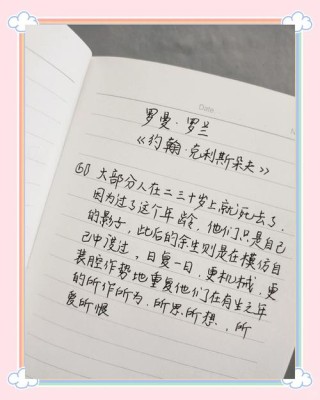 Date
罗曼·罗兰
《约翰·克利斯朵夫》
⑥ 大部分人在二三十岁上就死去了,
因为过了这个年龄,他们只是自己
的影子,此后的余生则是在模仿自
己中度过,日复一日,更机械,更
装腔作势地重复他们在有生之年
的所作所为,所思所想,所
爱所恨